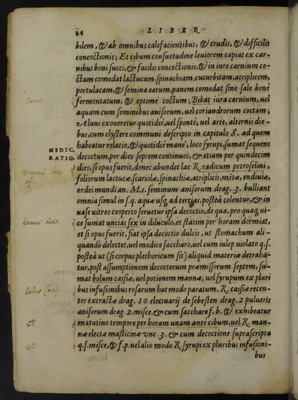 24 LIBER
bilem, & ab omnibus calefacientibus, & crudis, & difficilis
concoctionis; Et cibum consuetudine leuiorem capiat ex car-
nibus boni succi, & facilis concoctionis, & in iure carnium co-
ctam comedat lactucam, spinachiam, cucurbitam, atriplicem,
portulacam, & semina earum, panem comedat sine sale bene
fermentatum, & optime coctum. Bibat iura carnium, uel
aquam cum seminibus anisorum, uel coriandrorum coctam,
Aluus exoneretur quotidie, uel sponte, uel arte, alternis die-
bus, cum clystere communi descripto in capitulo 8. ad quem
habeatur relatio, & quotidie mane, loco syrupi, sumat sequens
MEDIC.
RATIO.
decoctum, per dies septem continuos, & etiam per quindecim
dies, si opus fuerit, donec abundet lac. R. radicum petroselini,
foliorum lactucæ, scariolæ, spinachiæ, atriplicis, mētæ, endiuiæ,
erdei mundi an. M.s. seminum anisorum drag. 3. bulliant
omnia simul in s.q. aquæ usq. ad tertias, postea colentur, & in
uase uitreo cooperto seruetur ipsa decoctio, de qua, pro quaq; ui-
ce sumat uncias sex in diluculo, et statim per horam dormiat,
et si opus fuerit, fiat ipsa decoctio dulcis, ut stomachum ali-
quando delectet, uel modico saccharo, uel cum iulep uiolato q.s.
postea ut (si corpus plethoricum sit) aliquid materiæ detraha-
tur, post assumptionem decoctorum præmissorum septem, su-
mat bolum casiæ, uel potionem mannæ, uel syrupum ex pluri
bus infusionibus rosarum hoc modo paratum. R. cassiæ recen-
ter extractæ drag. 10. electuarij de sebesten drag. 2. pulueris
anisorum drag. 2. misce, & cum saccharo f. b. & exhibeatur
matutino tempore per horam unam ante cibum, uel R. man-
næ electæ masticinæ unc. 3. & cum decoctione suprascripta
q.s. misce, & f. p. uel alio modo R. syrupi ex pluribus infusioni-
bus